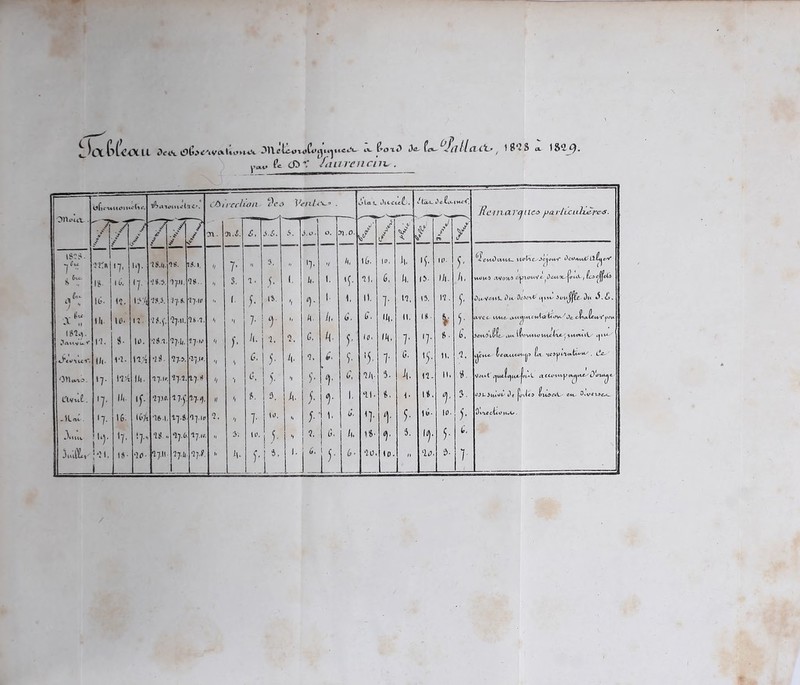 Tableau des Observations Météorologiques à bord de la Vallas, 1828 à 1829.
par le Dr Laurencin.
Mois. Thermomètre. Baromètre. Direction des Vents. Etat du ciel. Etat de la mer. Remarques particulières.
N. N.E. E. S.E. S. S.O. O. N.O.
1828.
7bre 17. 19. 28.4. 28. 28.1. " 7. " 3. " 17. " 4. 16. 10. 4. 15. 10. 5. Pendant notre séjour devant Alger
8bre 18. 16. 17. 28.3. 27.11. 28. " 3. 2. 5. 1. 4. 1. 15. 21. 6. 4. 13. 14. 4. nous avons éprouvé deux fois, les effets
9bre 16. 12. 28.3. 27.8. 27.10 " 1. 5. 13. " 9. 1. 1. 11. 7. 12. 13. 12. 5. du vent du désert qui souffle du S.E.
Xbre 14. 10. 12. 28.5. 27.11. 28.2. " " 7. 9. " 4. 4. 6. 6. 14. 11. 18. 8. 5. avec une augmentation de chaleur peu
1829.
Janvier 12. 8. 10. 28.2. 27.4. 27.10 " 5. 4. 2. 2. 6. 4. 5. 10. 14. 7. 17. 8. 6. sensible au thermomètre; mais qui
Février 14. 12. 28. 27.5. 27.10. " " 6. 5. 4. 2. 6. 5. 15. 7. 6. 15. 11. 2. gêne beaucoup la respiration. Ce
Mars. 17. 14. 27.10. 27.2. 27.8 " " 6. 5. " 5. 9. 6. 24. 3. 4. 12. 11. 8. vent quelquefois accompagné d'orage
Avril. 17. 14. 15. 27.10. 27.5. 27.9. " " 8. 3. 4. 5. 9. 1. 21. 8. 1. 18. 9. 3. est suivi de fortes brises en diverses
Mai. 17. 16. 28.1. 27.8. 27.10 2. " 7. 10. " 5. 1. 6. 17. 9. 5. 16. 10. 5. directions.
Juin 19. 17. 28. 27.6. 27.10. " 3. 10. 5. " 2. 6. 4. 18. 9. 3. 19. 5. 6.
Juillet 21. 18. 20. 27.11. 27.4. 27.8. " 4. 5. 3. 1. 6. 5. 6. 20. 10. " 20. 3. 7